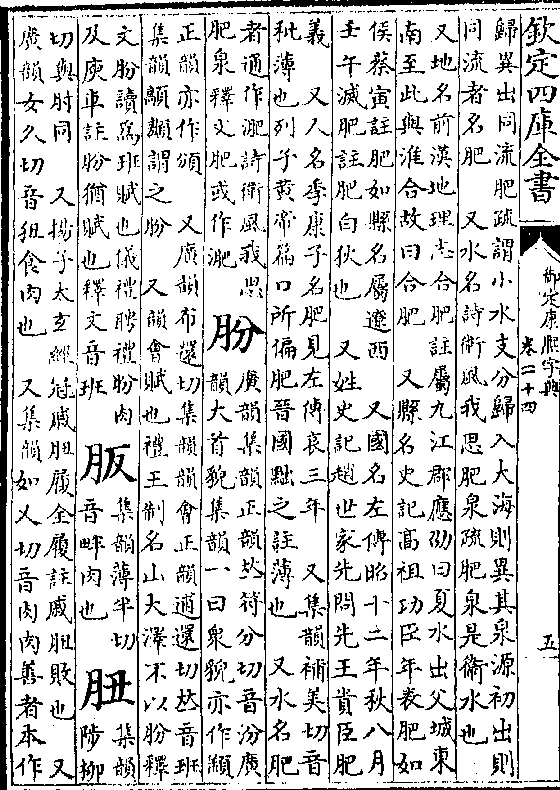 欽定四庫全書
御定康熙字典
卷二十四
五
歸異出同流肥疏謂小水支分歸入大海則異其泉源初出則
同流者名肥　又水名詩衛風我思肥泉疏肥泉是衛水也
又地名前漢地理志合肥註屬九江郡應劭曰夏水出父城東
南至此與淮合故曰合肥　又縣名史記高祖功臣年表肥如
侯蔡寅註肥如縣名屬遼西　又國名左傳昭十二年秋八月
壬午滅肥註肥白狄也　又姓史記趙世家先問先王貴臣肥
義　又人名季康子名肥見左傳哀三年　又集韻補美切音
秕薄也列子黄帝篇口所偏肥晉國黜之註薄也　又水名肥
者通作淝詩衛風我思
肥泉釋文肥或作淝
肦
廣韻集韻正韻𠀤符分切音汾廣
韻大首貌集韻一曰衆貌亦作頒
正韻亦作頒　又廣韻布還切集韻韻會正韻逋還切𠀤音班
集韻顰顙謂之肦　又韻會賦也禮王制名山大澤不以肦釋
文肦讀爲班賦也儀禮聘禮肦肉
及廋車註肦猶賦也釋文音班
䏒
集韻薄半切
音畔肉也
胆
集韻
陟柳
切與肘同　又揚子太玄經冠戚胆履全履註戚胆敗也　又
廣韻女久切音狃食肉也　又集韻如又切音肉肉善者本作